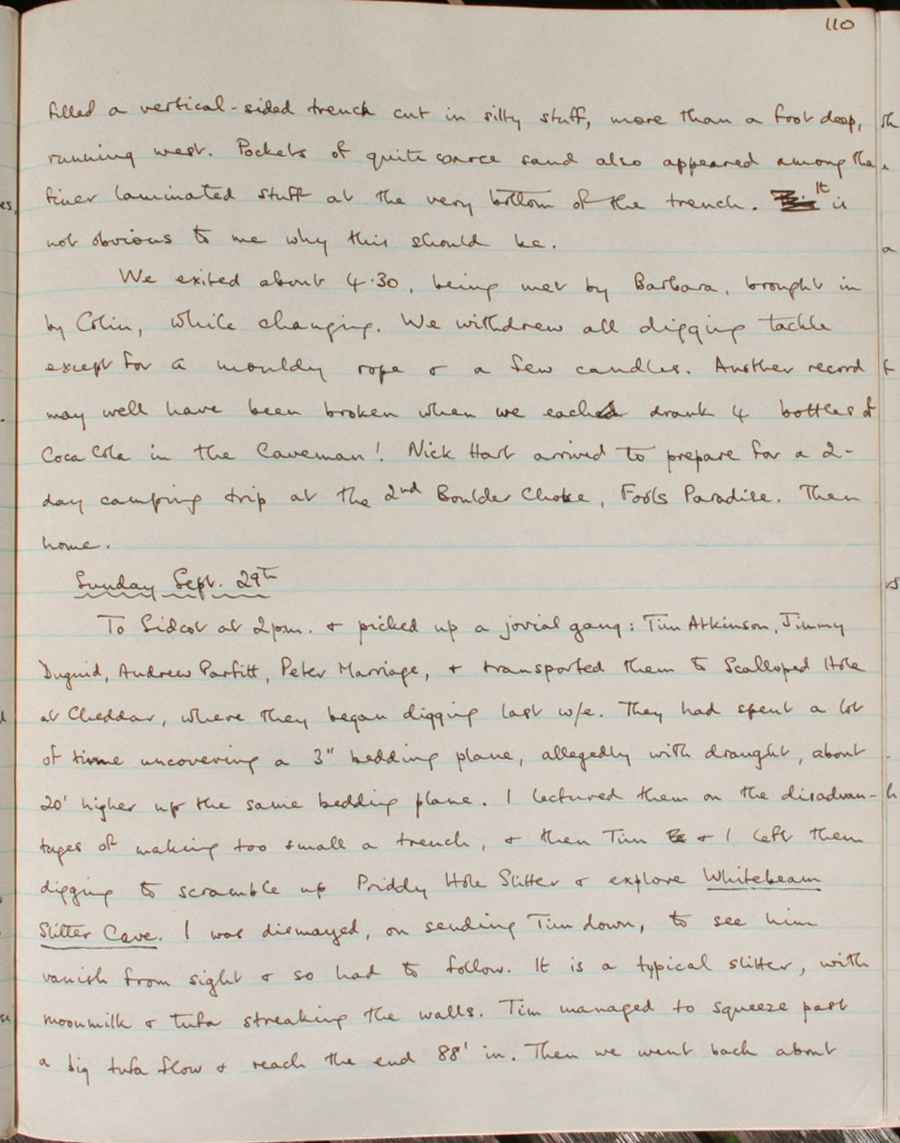 110
filled a vertical-sided trench cut in silty stuff, more than a foot deep,
running west. Pockets of quite coarce sand also appeared among the
finer laminated stuff at the very bottom of the trench. It is
not obvious to me why this should be.
We exited about 4.30, being met by Barbara, brought in
by Colin, while changing. We withdrew all digging tackle
except for a mouldy rope & a few candles. Another record
may well have been broken when we each drank 4 bottles of
Coca Cola in the Caveman! Nick Hart arrived to prepare for a 2-
day camping trip at the 2nd Boulder Choke, Fools Paradise. Then
home.
Sunday Sept. 29th
To Sidcot at 2pm. & picked up a jovial gang: Tim Atkinson, Jimmy
Duguid, Andrew Parfitt, Peter Marriage, & transported them to Scalloped Hole
at Cheddar, where they began digging last w/e. They had spent a lot
of time uncovering a 3" bedding plane, allegedly with draught, about
20' higher up the same bedding plane. I lectured them on the disadvan-
tages of making too small a trench, & then Tim & I left them
digging to scramble up Priddy Hole Slitter & explore Whitebeam
Slitter Cave. I was dismayed, on sending Tim down, to see him
vanish from sight & so had to follow. It is a typical slitter, with
moonmilk & tufa streaking the walls. Tim managed to squeeze past
a big tufa flow & reach the end 88' in. Then we went back about